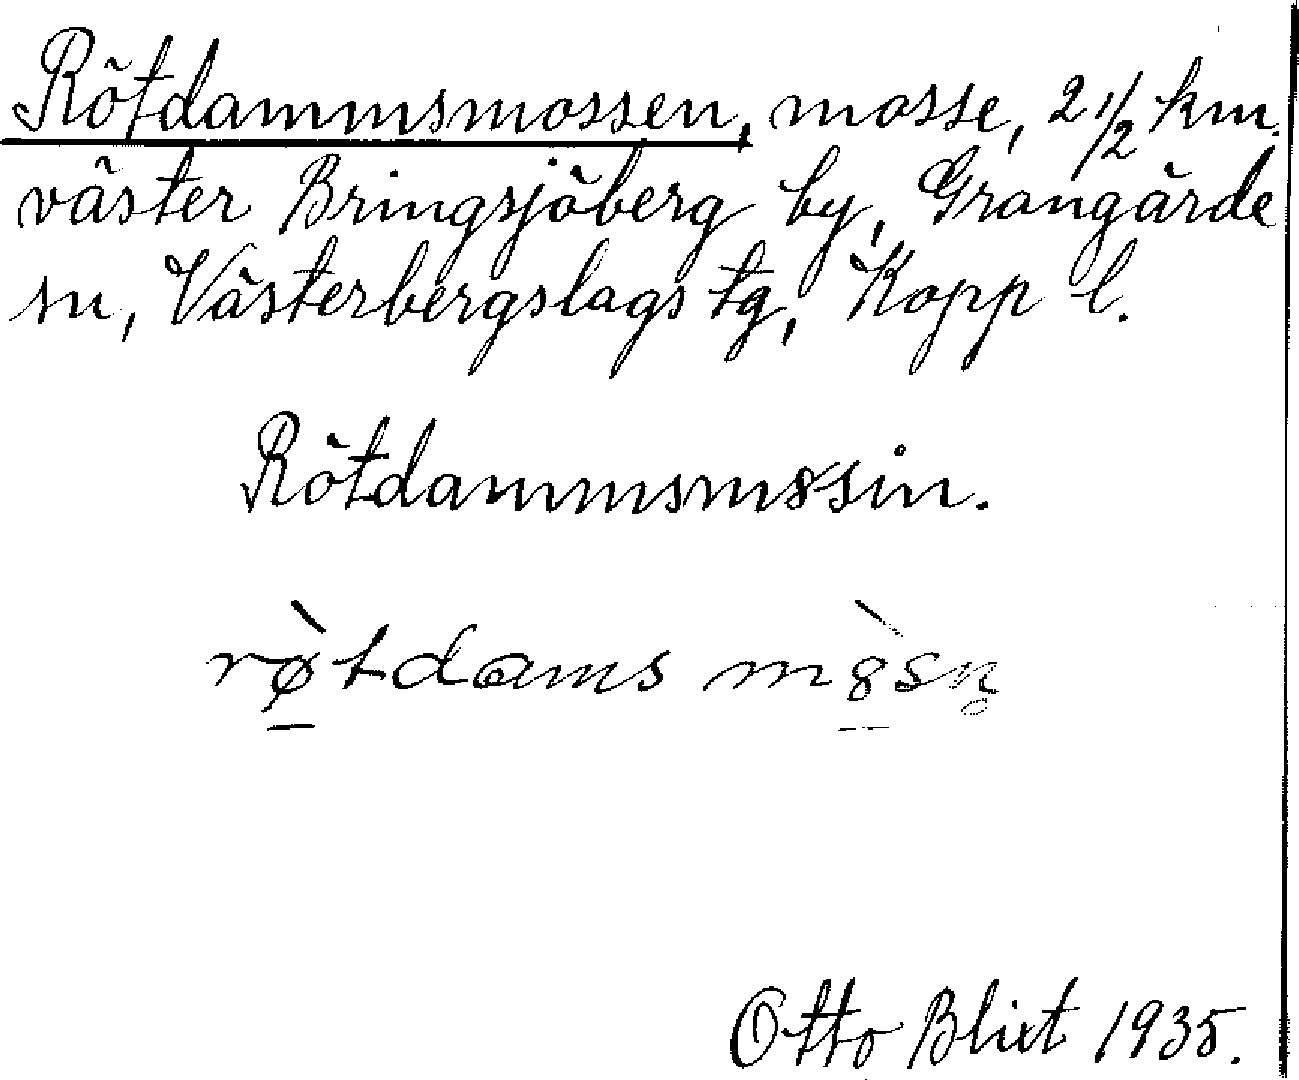 Rötdammsmossen, mosse, 2 1/2 km.
väster Bringsjöberg by, Grangärde
sn, Västerbergslags tg, Kopp l.
Rötdammsm8sin.
rø̀tdams m8̀sn̥
Otto Blixt 1935.